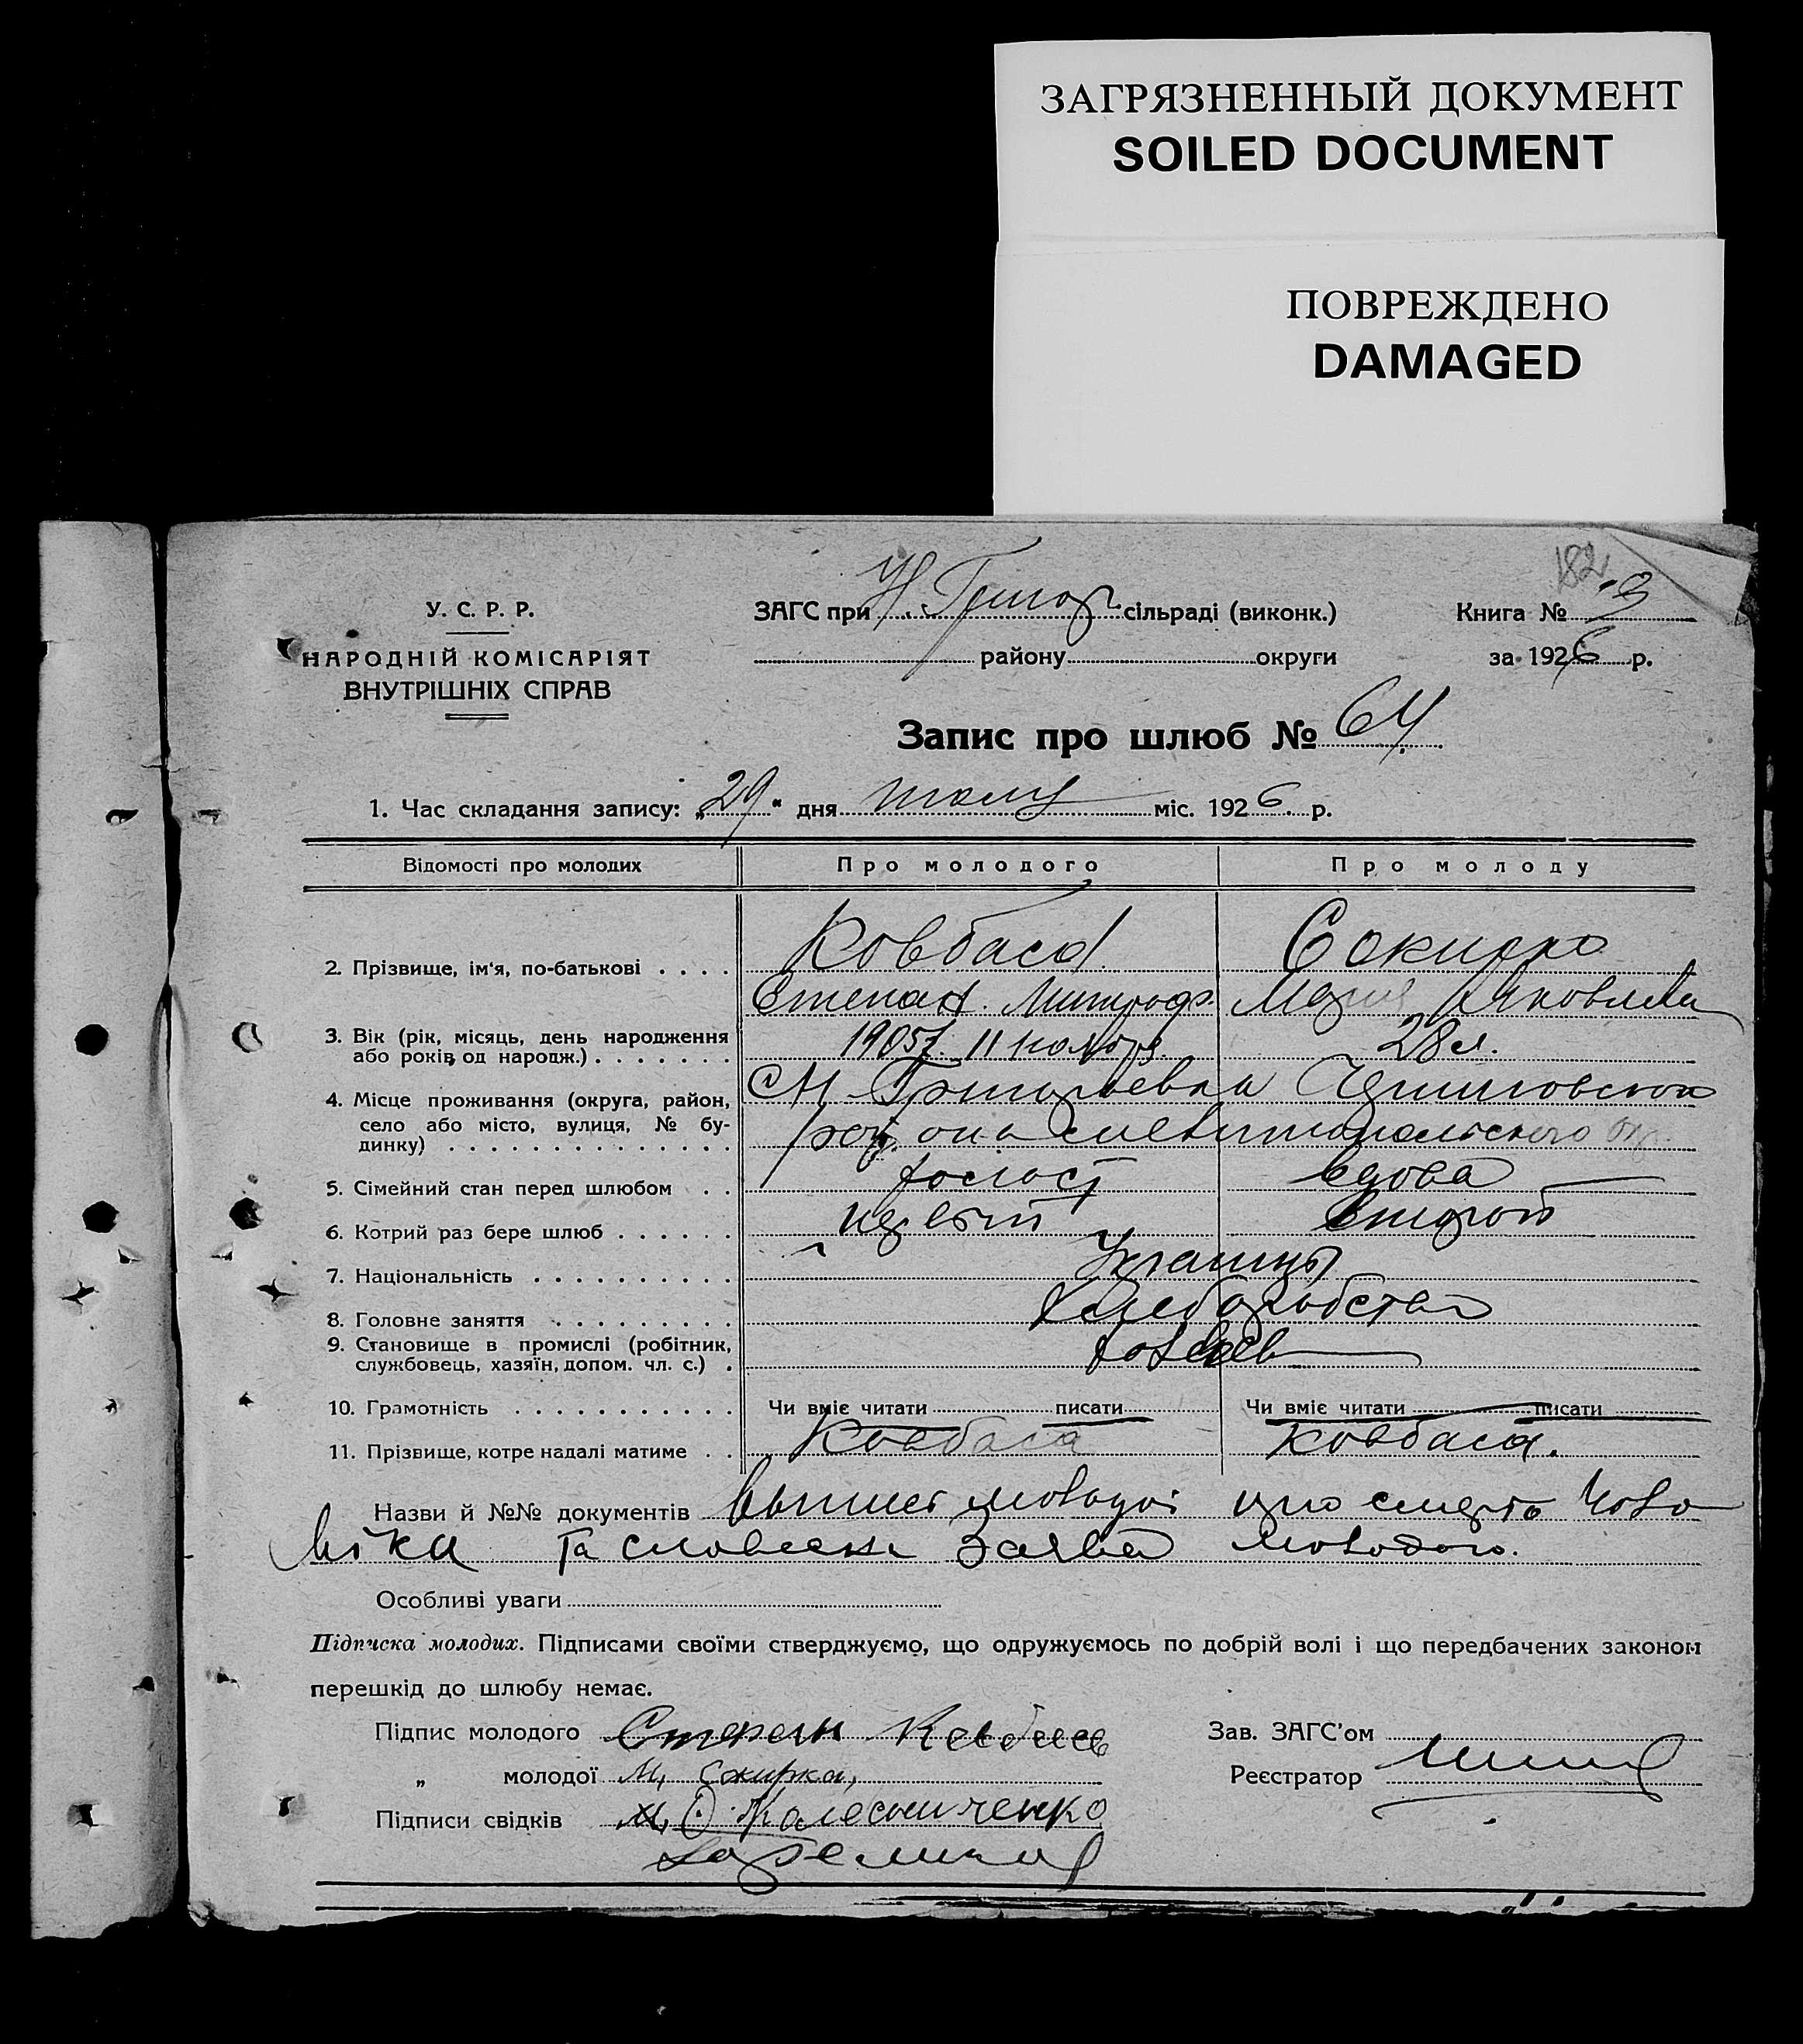 ЗАГРЯЗНЕННЫЙ ДОКУМЕНТ
SOILED DOCUMENT
ПОВРЕЖДЕНО
DAMAGED
182
У. С. Р. Р.
НАРОДНІЙ КОМІСАРІЯТ
ВНУТРІШНІХ СПРАВ
ЗАГС при Н. Григор. сільраді (виконк.)
району округи
Книга № 3
за 1926 р.
Запис про шлюб № 64
1. Час складання запису: „29“ дня міс. 1926 р.
Відомості про молодих Про молодого Про молоду
2. Прізвище, ім'я, по-батькові . . . . Ковбаса Сокирка
Степан. Митроф. Мария Яковлева
3. Вік (рік, місяць, день народження
або років, од народж.) . . . . . . . 1905г. 11 ноября 28 л.
4. Місце проживання (округа, район,
село або місто, вулиця, № бу-
динку) . . . . . . . . . . . . . .
С Н Григорьевка
района Мелитопольского окр.
5. Сімейний стан перед шлюбом . . холост вдова
6. Котрий раз бере шлюб . . . . . . первый второй
7. Національність . . . . . . . . . . Украинцы
8. Головне заняття . . . . . . . . . Хлеборобство
9. Становище в промислі (робітник,
службовець, хазяїн, допом. чл. с.) .
10. Грамотність . . . . . . . . . . . Чи вміє читати писати Чи вміє читати писати
11. Прізвище, котре надалі матиме . . Ковбаса Ковбаса.
Назви й №№ документів молодої про смерть чоло
віка та словесна заява молодого.
Особливі уваги
Підписка молодих. Підписами своїми стверджуємо, що одружуємось по добрій волі і що передбачених законом
перешкід до шлюбу немає.
Підпис молодого Степан Ковбаса
„ молодої М, Сокирка,
Підписи свідків Колесниченко
Зав. ЗАГС'ом
Реєстратор